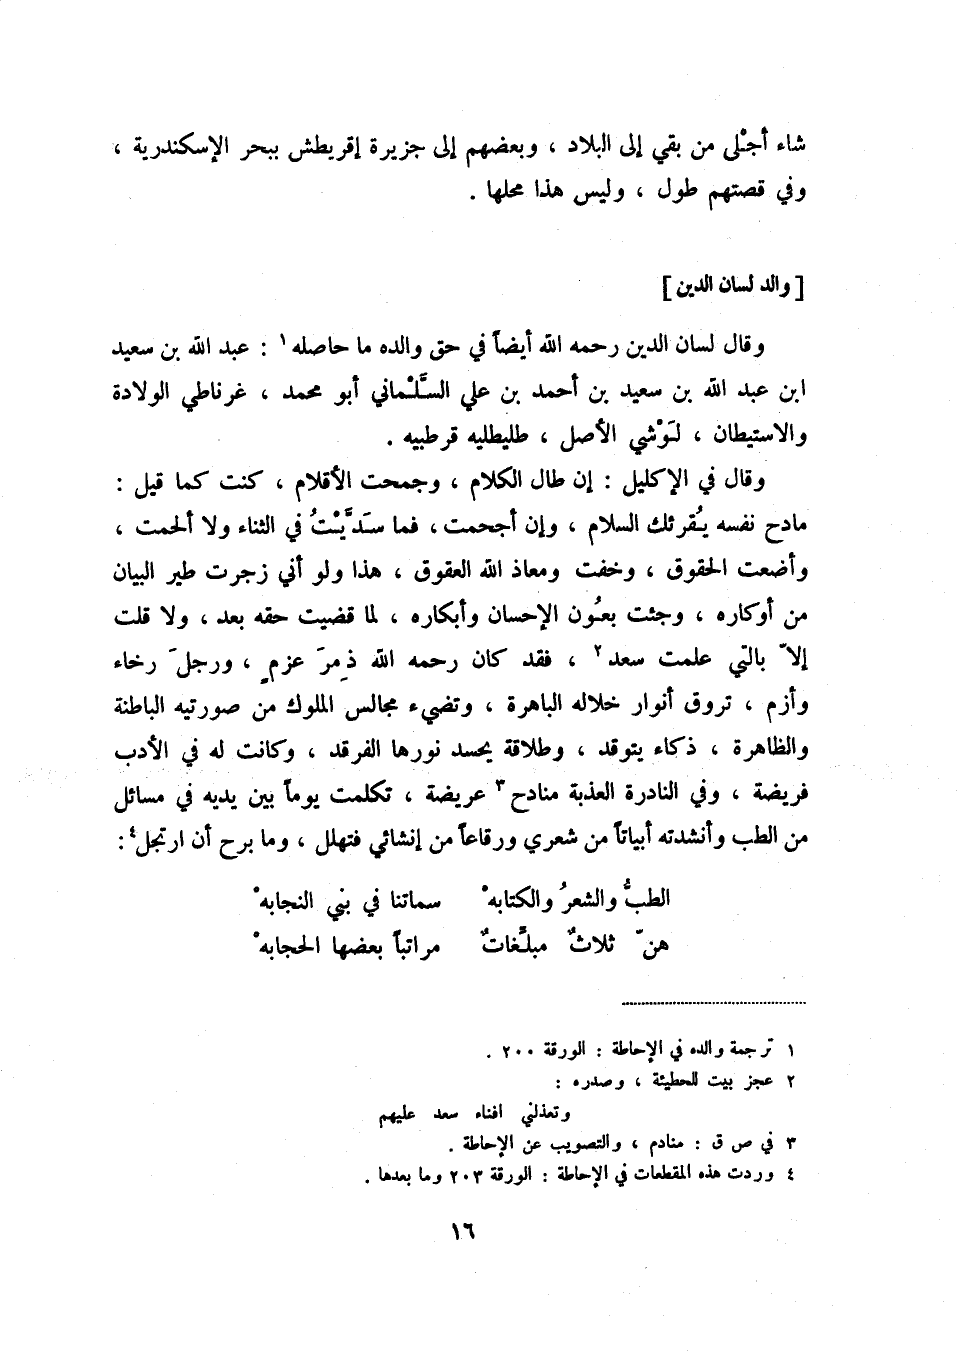 شاء أجْلى من بقي إلى البلاد ، وبعضهم إلى جزيرة إقريطش ببحر الإسكندرية ،
وفي قصتهم طول ، وليس هذا محلها .
[ والد لسان الدين ]
وقال لسان الدين رحمه الله أيضاً في حق والده ما حاصله ١ : عبد الله بن سعيد
ابن عبد الله بن سعيد بن أحمد بن علي السَّلْماني أبو محمد ، غرناطي الولادة
والاستيطان ، لَوْشي الأصل ، طليطليه قرطبيه .
وقال في الإكليل : إن طال الكلام ، وجمحت الأقلام ، كنت كما قيل :
مادح نفسه يُقرئك السلام ، وإن أجحمت ، فما سَدَّيْتُ في الثناء ولا ألحمت ،
وأضعت الحقوق ، وخفت ومعاذ الله العقوق ، هذا ولو أني زجرت طير البيان
من أوكاره ، وجئت بعُون الإحسان وأبكاره ، لما قضيت حقه بعد ، ولا قلت
إلاّ بالتي علمت سعد ٢ ، فقد كان رحمه الله ذِمرَ عزمٍ ، ورجلَ رخاء
وأزم ، تروق أنوار خلاله الباهرة ، وتضيء مجالس الملوك من صورتيه الباطنة
والظاهرة ، ذكاء يتوقد ، وطلاقة يحسد نورها الفرقد ، وكانت له في الأدب
فريضة ، وفي النادرة العذبة منادح ٣ عريضة ، تكلمت يوماً بين يديه في مسائل
من الطب وأنشدته أبياتاً من شعري ورقاعاً من إنشائي فتهلل ، وما برح أن ارتجل ٤ :
الطبُّ والشعرُ والكتابهْ سماتنا في بني النجابهْ
هنّ ثلاثٌ مبلِّغاتٌ مراتباً بعضها الحجابهْ
١ ترجمة والده في الإحاطة : الورقة ٢٠٠ .
٢ عجز بيت للحطيئة ، وصدره :
وتعذلني افناء سعد عليهم
٣ في ص ق : منادم ، والتصويب عن الإحاطة .
٤ وردت هذه المقطعات في الإحاطة : الورقة ٢٠٣ وما بعدها .
١٦